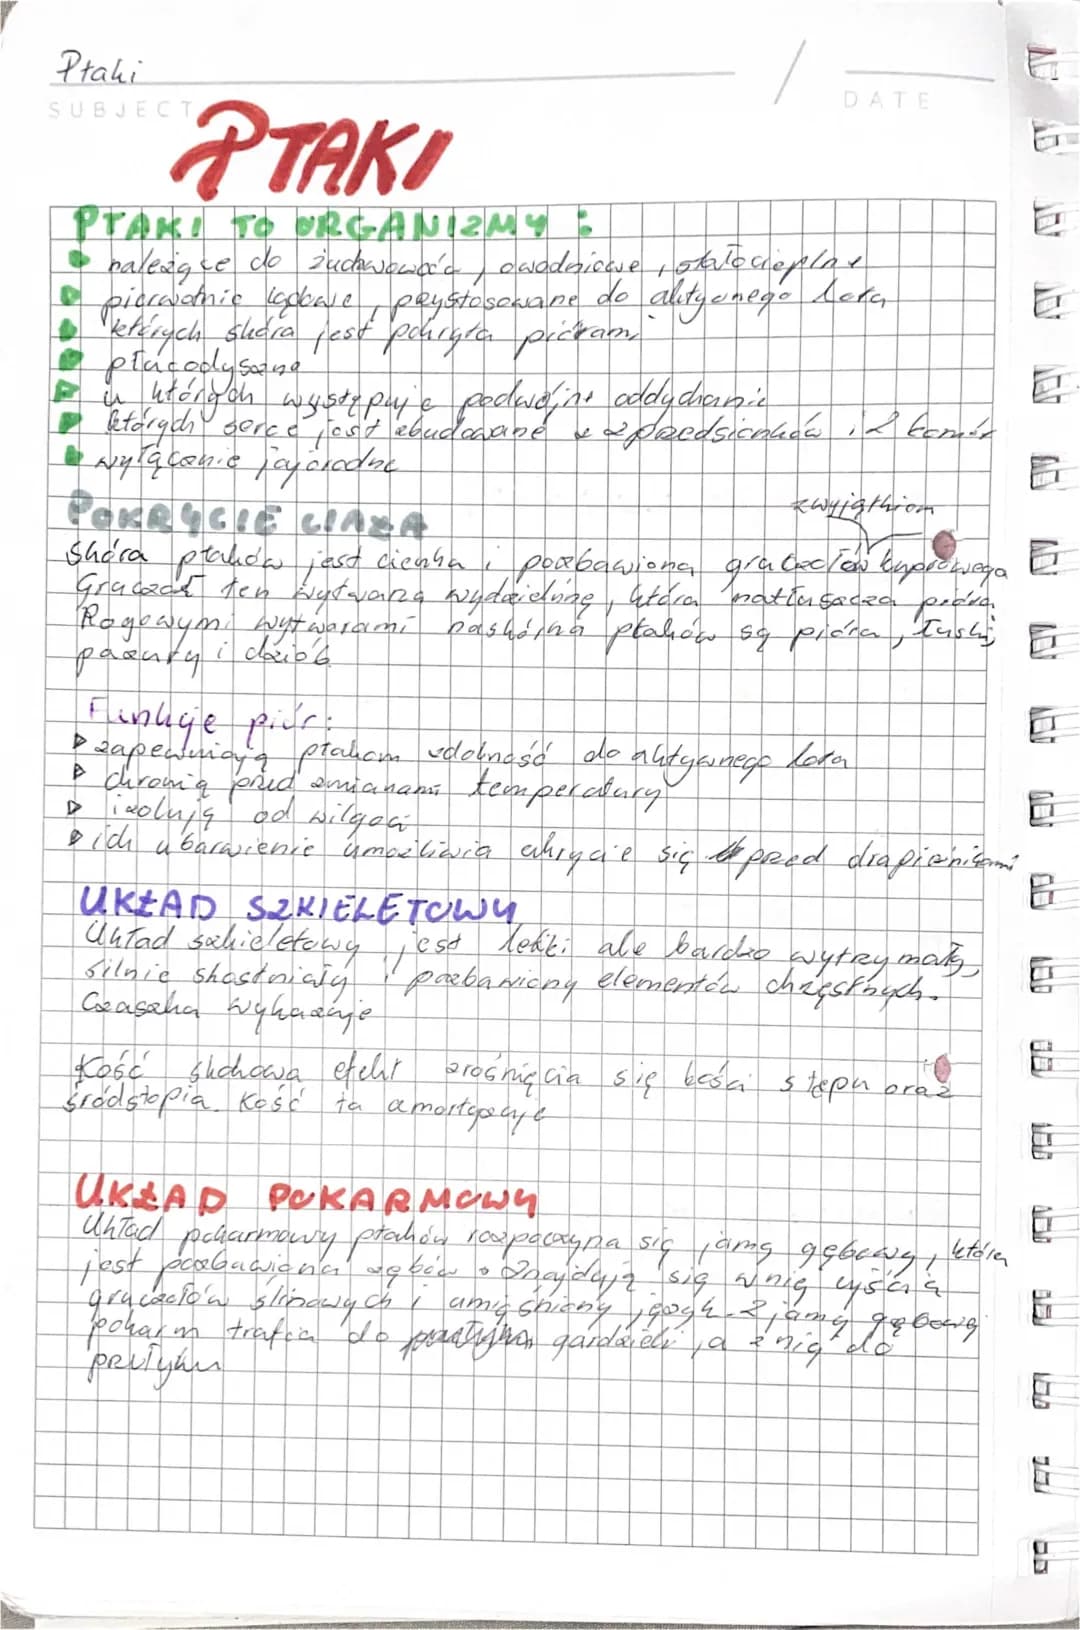 Ptaki
SUBJECT
DATE
PTAKI
PTAKI TO ORGANIZMY :
należące do żuchwowców, owodniowe, stałocieplne
pierwotnie lądowe, przystosowane do aktywnego lotu
których skóra jest pokryta piórami
płucodyszne
u których występuje podwójne oddychanie
których serce jest zbudowane z 2 przedsionków i 2 komór
wyłącznie jajorodne
POKRYCIE CIAŁA
z wyjątkiem
Skóra ptaków jest cienka i pozbawiona gruczołów kuprowego
Gruczoł ten wytwarza wydzielinę, która natłuszcza pióra.
Rogowymi wytworami naskórka ptaków są pióra, łuski,
pazury i dziób
Funkcje piór:
zapewniają ptakom zdolność do aktywnego lotu
chronią przed zmianami temperatury
izolują od wilgoci
ich ubarwienie umożliwia ukrycie się przed drapieżnikami
UKŁAD SZKIELETOWY
Układ szkieletowy jest lekki ale bardzo wytrzymały,
silnie skostniały i pozbawiony elementów chrzęstnych.
Czaszka wykazuje
Kość skokowa efekt zrośnięcia się kości stępu oraz
śródstopia. Kość ta amortyzuje
UKŁAD POKARMOWY
Układ pokarmowy ptaków rozpoczyna się jamą gębową, która
jest pozbawiona zębów. Znajdują się w niej ujścia
gruczołów ślinowych i umięśniony język. Z jamy gębowej
pokarm trafia do gardzieli, a z nią do
przełyku